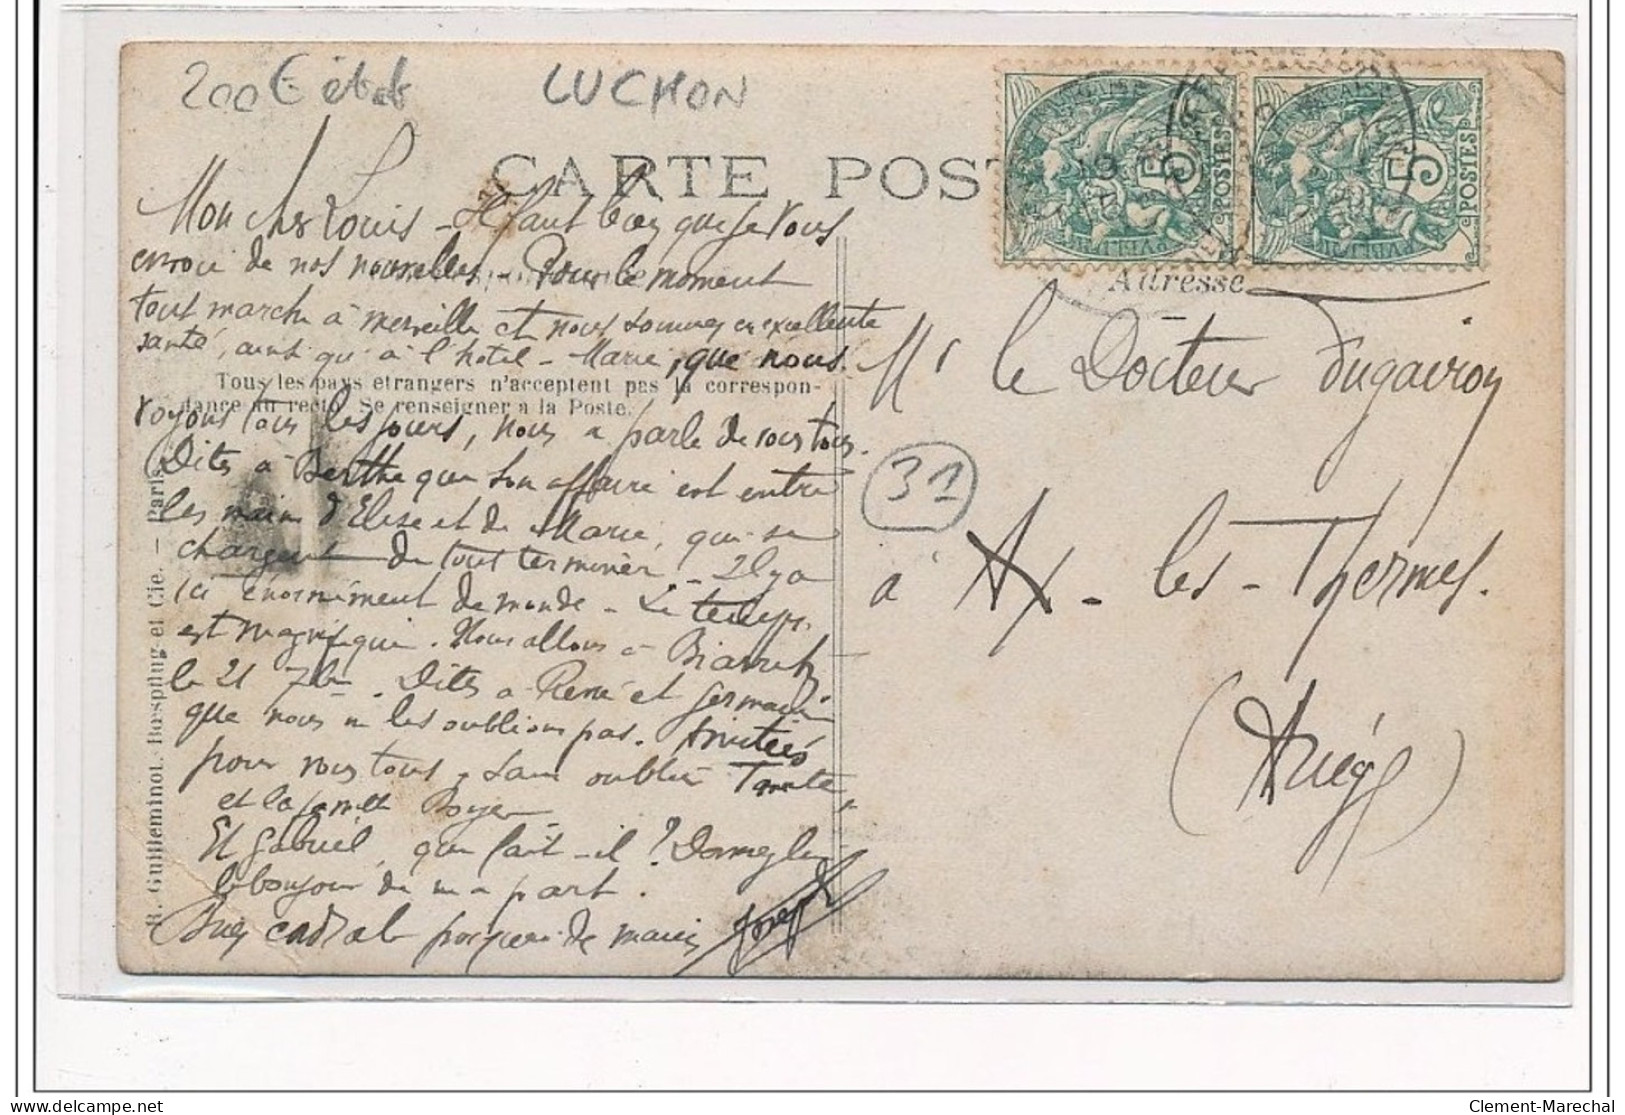 200€ état
LUCHON
CARTE POST
Mon cher Louis - Il faut bien que je vous
envoie de nos nouvelles - Pour le moment
tout marche à merveille et nous sommes en excellente
santé, ainsi qu'à l'hôtel - Marie, que nous
Tous les pays etrangers n'acceptent pas la correspon-
dance au recto. Se renseigner a la Poste.
voyons tous les jours, nous a parlé de vous tous.
Dites à Berthe que son affaire est entre
les mains d'Elise et de Marie, qui se
chargent de tout terminer. - Il y a
ici énormément de monde - Le temps
est magnifique. Nous allons à Biarritz
le 21 7bre. Dites à René et Germain
que nous ne les oublions pas. Amitiés
pour vous tous, sans oublier Tante
et la famille Boyer
Et Gabriel, que fait-il ? Donnez lui
le bonjour de ma part.
Bien cordiale poignée de mains Joseph
R. Guilleminot, Bœspflug et Cie. - Paris
5
POSTES
5
POSTES
Adresse
Mr le Docteur Dugairon
31
à Ax-les-Thermes.
(Ariège)
Clement-Marechal